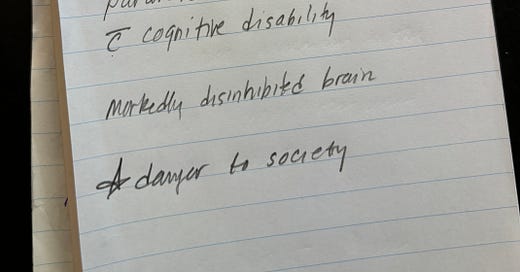 c̄ cognitive disability
Markedly disinhibited brain
☆ danger to society